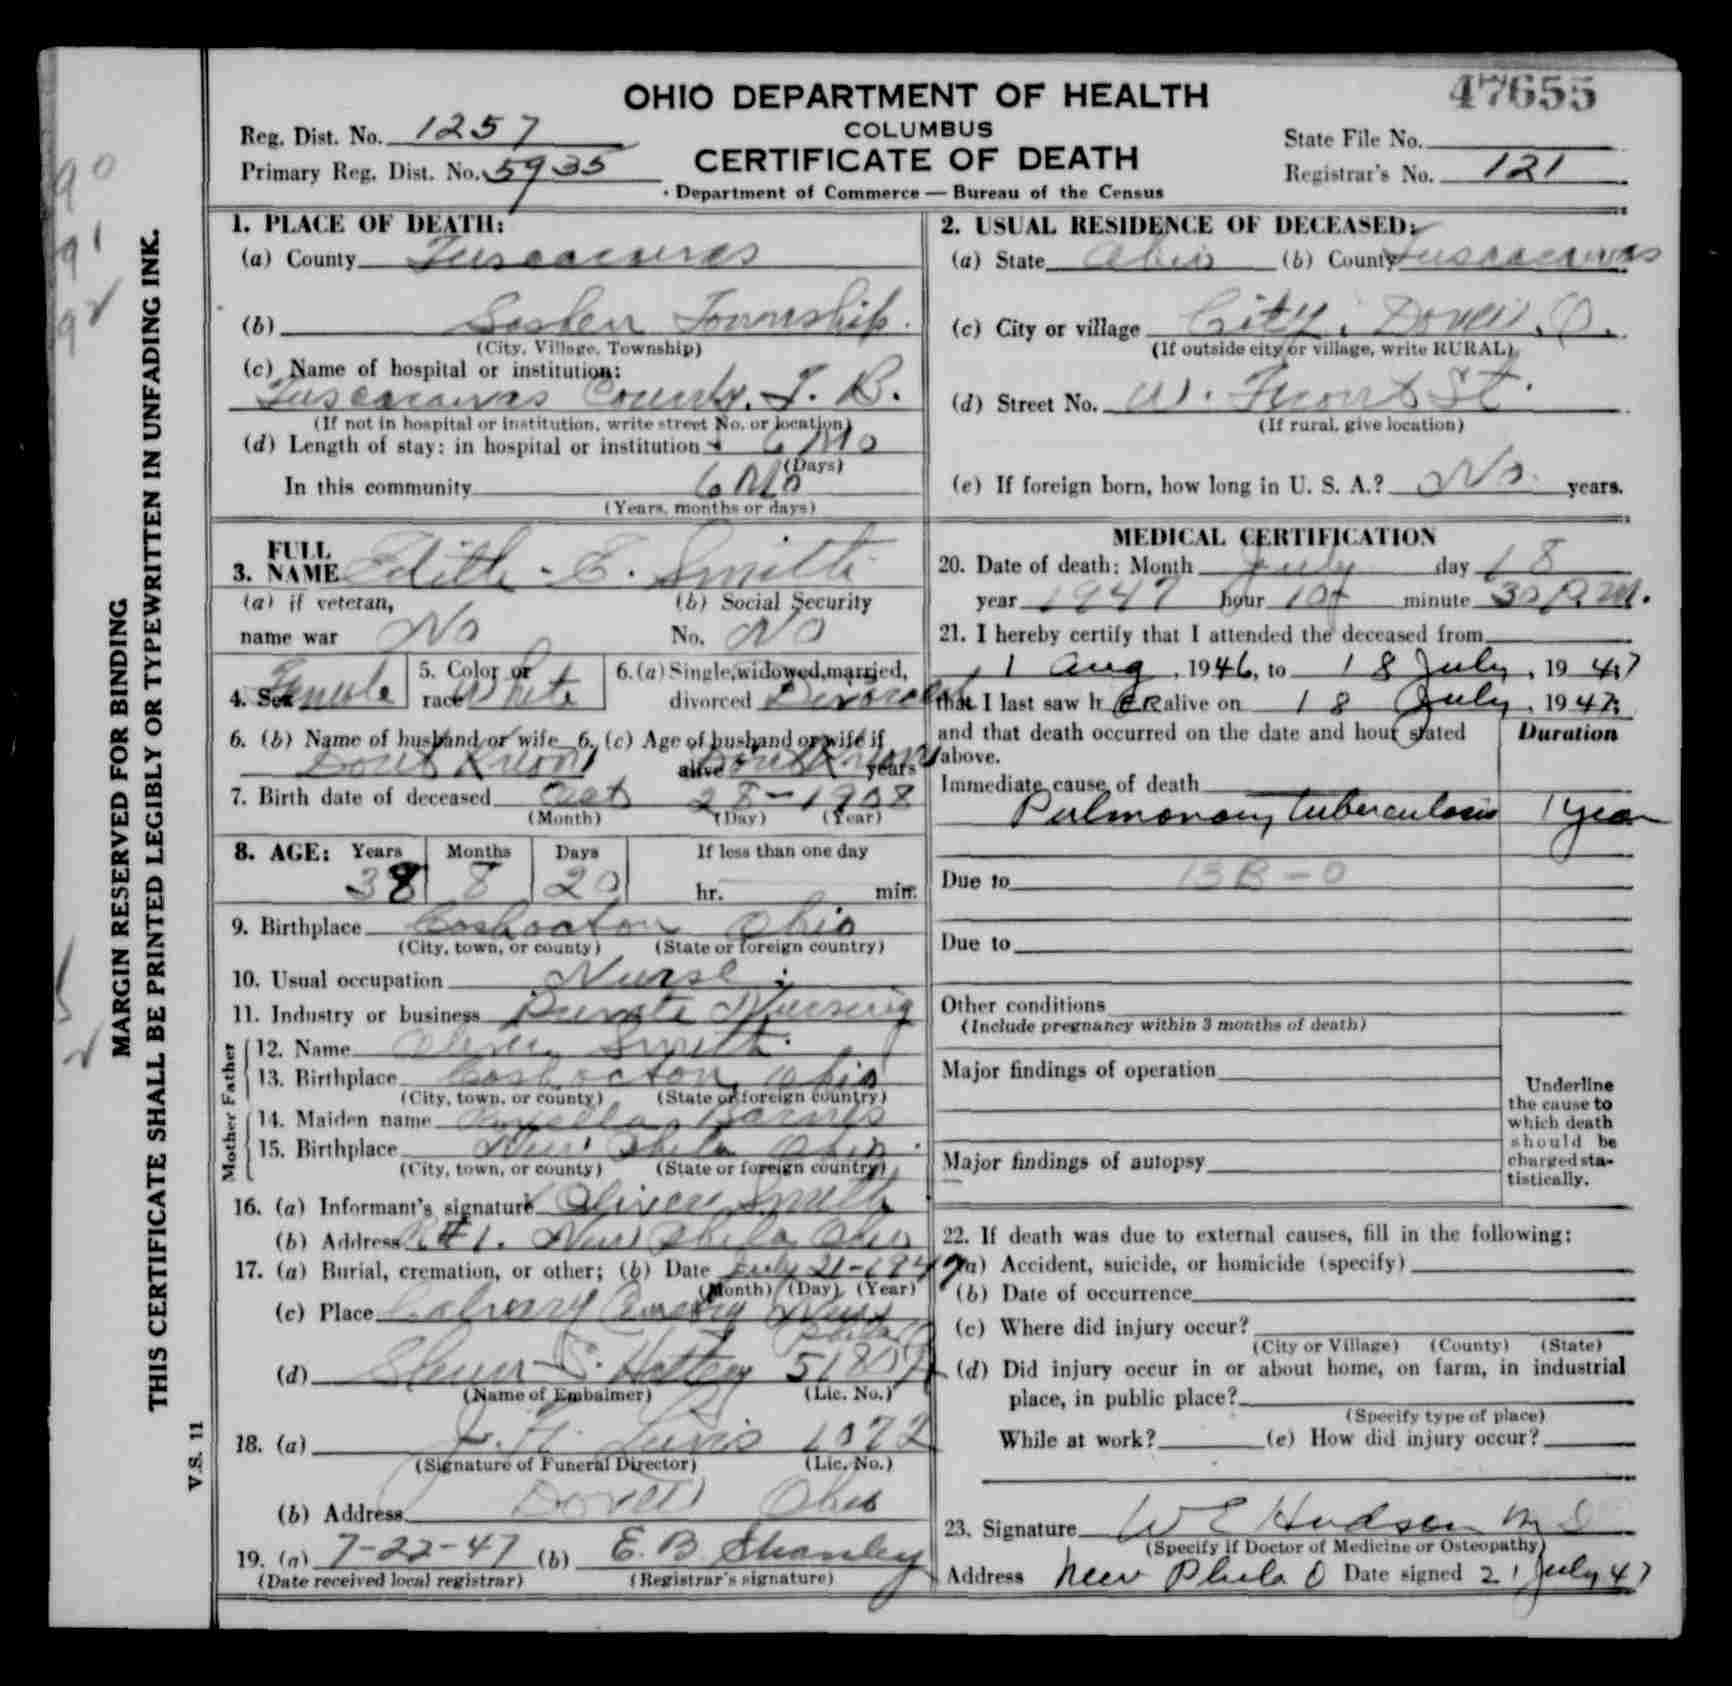 47655
OHIO DEPARTMENT OF HEALTH
COLUMBUS
CERTIFICATE OF DEATH
Department of Commerce — Bureau of the Census
Reg. Dist. No. 1257
Primary Reg. Dist. No. 5935
State File No.
Registrar's No. 121
MARGIN RESERVED FOR BINDING
THIS CERTIFICATE SHALL BE PRINTED LEGIBLY OR TYPEWRITTEN IN UNFADING INK.
V.S. 11
1. PLACE OF DEATH:
(a) County Tuscarawas
(b) Goshen Township.
(City, Village, Township)
(c) Name of hospital or institution:
Tuscarawas County. T. B.
(If not in hospital or institution, write street No. or location)
(d) Length of stay: in hospital or institution 6 Mo
(Days)
In this community 6 Mo
(Years, months or days)
2. USUAL RESIDENCE OF DECEASED:
(a) State Ohio (b) County Tuscarawas
(c) City or village City. Dover. O.
(If outside city or village, write RURAL)
(d) Street No. W. Front St.
(If rural, give location)
(e) If foreign born, how long in U. S. A.? No years.
3. FULL NAME Edith E. Smith
(a) if veteran, name war No
(b) Social Security No. No
4. Sex Female
5. Color or race White
6. (a) Single, widowed, married, divorced Divorced
6. (b) Name of husband or wife Dont Know
6. (c) Age of husband or wife if alive Dont Know years
7. Birth date of deceased Oct 28-1908
(Month) (Day) (Year)
8. AGE: Years Months Days If less than one day
38 8 20 hr. min.
9. Birthplace Coshocton Ohio
(City, town, or county) (State or foreign country)
10. Usual occupation Nurse
11. Industry or business Private Nursing
Father
12. Name Oliver Smith
13. Birthplace Coshocton, Ohio
(City, town, or county) (State or foreign country)
Mother
14. Maiden name Barnes
15. Birthplace New Phila Ohio
(City, town, or county) (State or foreign country)
16. (a) Informant's signature Oliver Smith
(b) Address R#1. New Phila Ohio
17. (a) Burial, cremation, or other; (b) Date July 21-1947
(Month) (Day) (Year)
(c) Place Calvary Cemetery New Phila O
(d) S. 5180A
(Name of Embalmer) (Lic. No.)
18. (a) Lewis 1072
(Signature of Funeral Director) (Lic. No.)
(b) Address Dover Ohio
19. (a) 7-22-47 (b) E. B. Shanley
(Date received local registrar) (Registrar's signature)
MEDICAL CERTIFICATION
20. Date of death: Month July day 18
year 1947 hour 10 minute 30 P.M.
21. I hereby certify that I attended the deceased from
1 Aug, 1946, to 18 July, 1947
that I last saw h ER alive on 18 July, 1947;
and that death occurred on the date and hour stated above.
Duration
Immediate cause of death
Pulmonary tuberculosis 1 year
Due to 13B-0
Due to
Other conditions
(Include pregnancy within 3 months of death)
Major findings of operation
Major findings of autopsy
Underline the cause to which death should be charged statistically.
22. If death was due to external causes, fill in the following:
(a) Accident, suicide, or homicide (specify)
(b) Date of occurrence
(c) Where did injury occur?
(City or Village) (County) (State)
(d) Did injury occur in or about home, on farm, in industrial
place, in public place?
(Specify type of place)
While at work? (e) How did injury occur?
23. Signature W E Hudson M D
(Specify if Doctor of Medicine or Osteopathy)
Address New Phila O Date signed 21 July 47